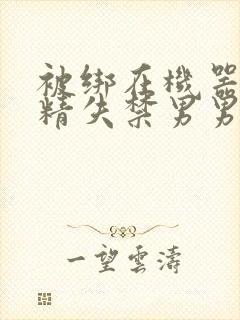 被绑在機器
精失禁男男
一望雲濤